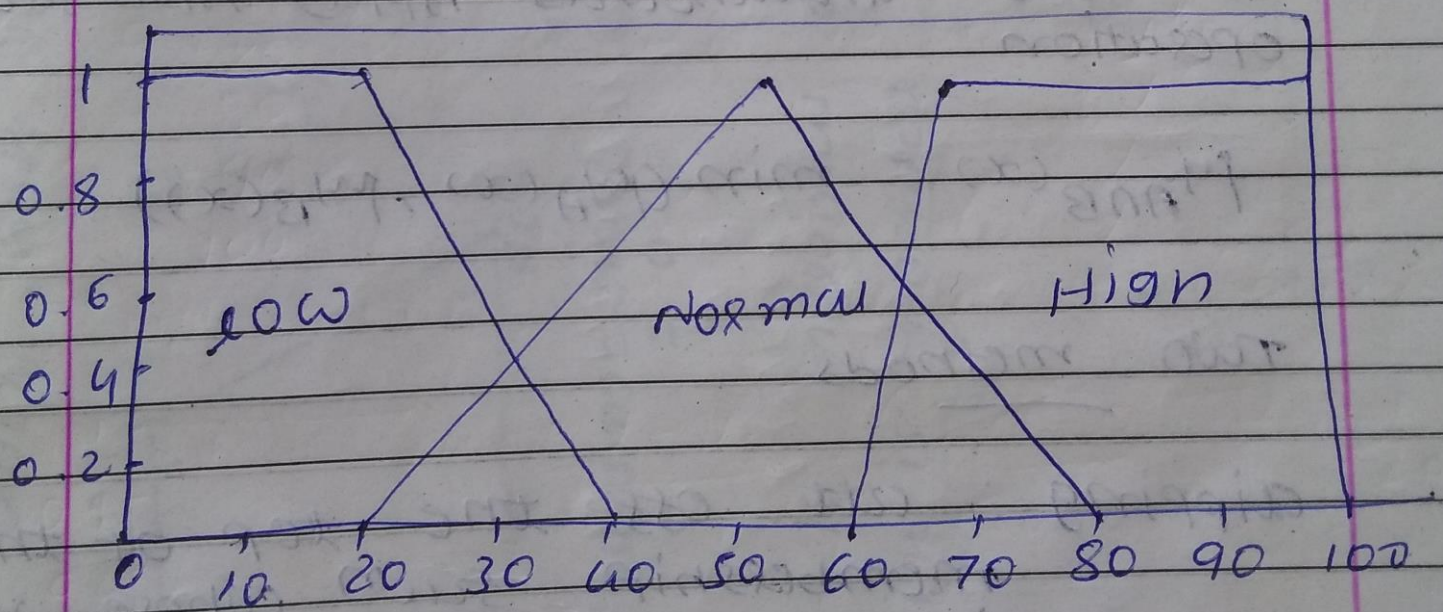 1
0.8
0.6
0.4
0.2
low Normal High
0 10 20 30 40 50 60 70 80 90 100